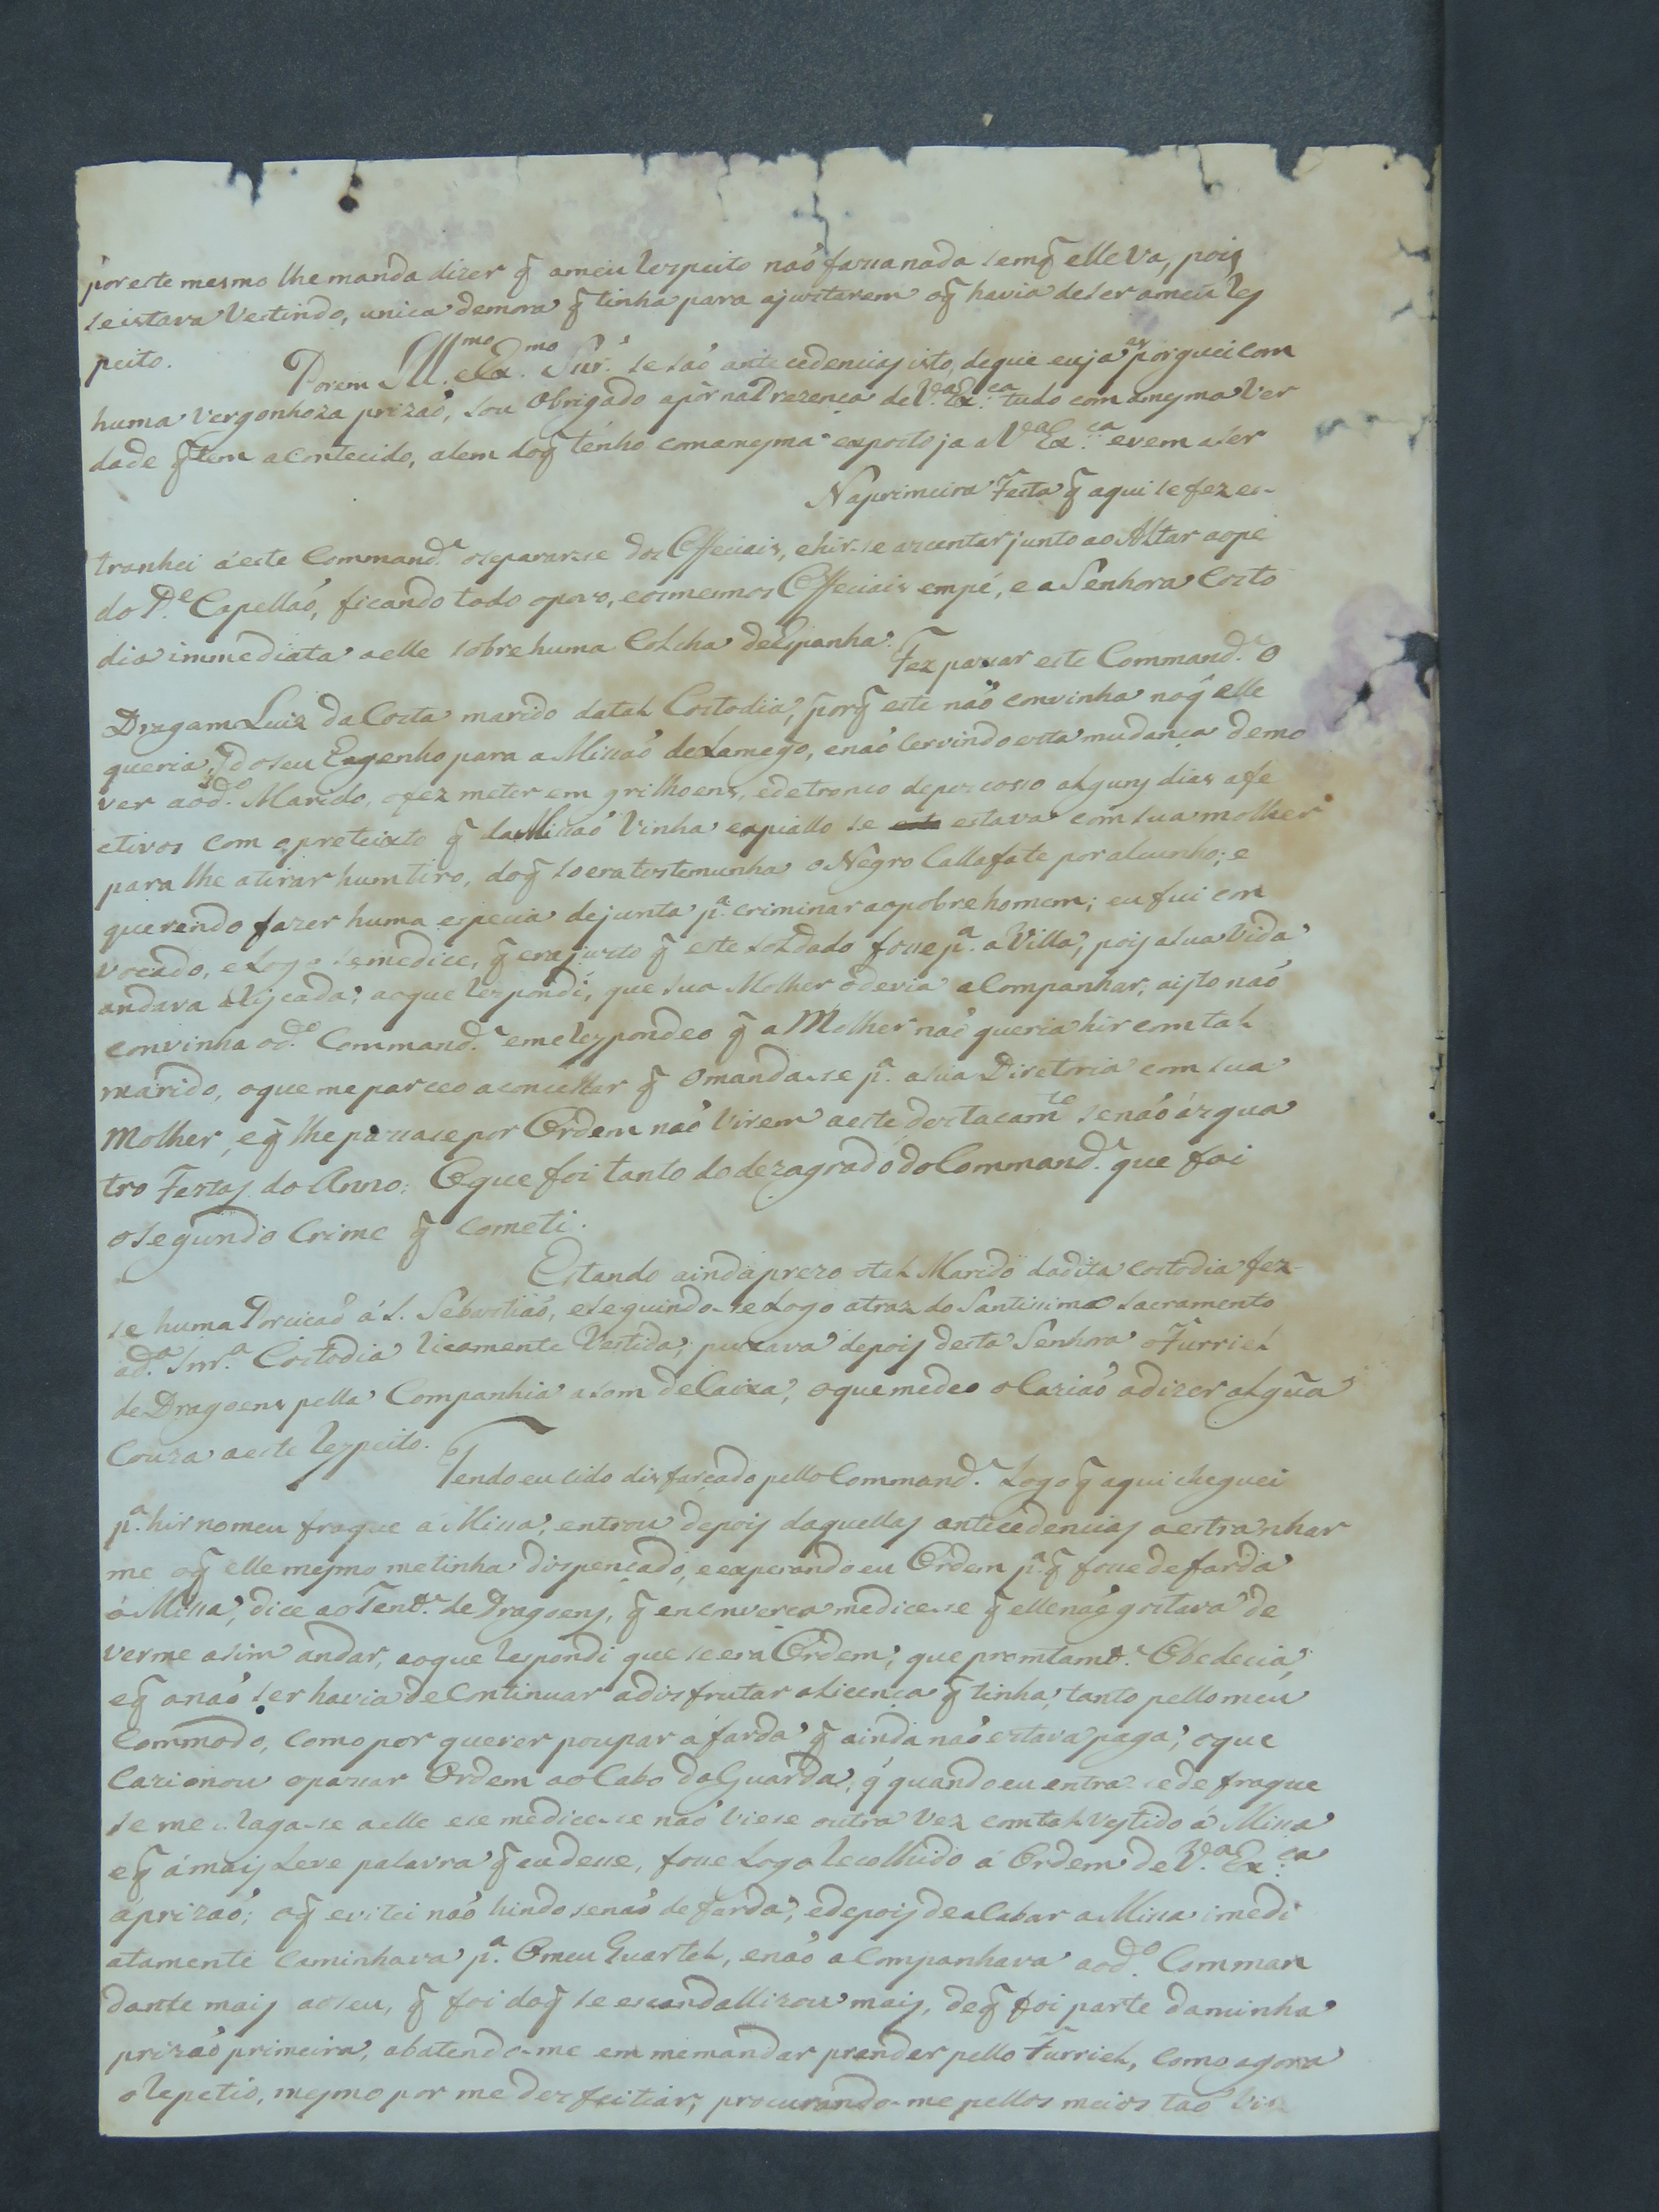 por este mesmo lhe manda dizer q̃ ameu respeito naõ faria nada semq̃ elle va, pois
se estava vestindo, unica demora q̃ tinha para ajustarem oq̃ havia deser ameu res
peito.
Porem Ill.mo e Ex.mo Snr.' se saõ antecedencias isto, deque euja as porguei com
huma vergonhoza prizaõ, sou obrigado apôr na Prezença de V.a Ex.ca tudo com amesma ver
dade q̃ tem acontecido, alem doq̃ tenho comamesma exposto ja a V.a Ex.ca evem aser
Naprimeira Festa q̃ aqui sefez es-
tranhei áeste Command.e oseparar-se dos Officiais, ehir-se asentar junto ao Altar aope
do P.e Capellaõ, ficando todo opovo, eosmesmos Officiais empé, e a Senhora Costo
dia immediata aelle sobre huma Colcha deEspanha.
Fez passar este Command.e O
Dragam Luiz da Costa marido datal Costodia, porq̃ este naõ convinha noq̃ elle
queria, doseu Engenho para a Missaõ deLamego, enaõ servindo esta mudança demo
ver aod.o Marido, ofez meter em grilhoens, edetronco depescosso alguns dias afe
ctivos com opreteisto q̃ daMissaõ vinha espiallo se estava com sua molher
para lhe atirar humtiro, doq̃ soera testemunha o Negro Callafate por alcunho; e
querendo fazer huma especia dejunta p.a criminar aopobre homem; eu fui con
vocado, e logo semedice, q̃ erajusto q̃ este soldado fosse p.a a Villa, pois asua vida
andava arliscada; aoque respondi, que sua Molher odevia acompanhar; aisto naõ
convinha od.o Command.e emerespondeo q̃ a Molher naõ queria hir comtal
marido, oque meparceo aconcelhar q̃ omanda-se p.a asua Diretoria com sua
Molher, eq̃ lhepassasepor Ordem naõ virem aeste destacam.te senaõ ás qua
tro Festas do Anno; Oque foi tanto do dezagrado do Command.e que foi
osegundo Crime q̃ cometi.
Estando ainda prezo otal Marido dadita costodia fez-
se huma Porciçaõ á S. Sebastiaõ, eseguindo-se logo atraz do Santissimo Sacramento
ad.a Snr.a Costodia ricamente vestida; puxava depois desta Senhora oFurriel
de Dragoens pella Companhia asom deCaixa, oquemedeo oCaziaõ adizer algũa
Couza aeste respeito.
Tendo eu sido disfarçado pelloCommand.e Logo q̃ aqui cheguei
p.a hir nomeu fraque a Missa, entrou depois daquellas antecedencias aestranhar
me oq̃ elle mesmo metinha dispençado, eesperando eu Ordem p.a q̃ fosse defarda
a Missa, dice aoTen.e de Dragoens, q̃ enconverca medice-se q̃ ellenaõ gostava de
verme asim andar, aoque respondi que seera Ordem, que promtam.e Obedecia,
eq̃ anaõ ser havia deContinuar adisfrutar alicença q̃ tinha, tanto pellomeu
Commodo, como por querer poupar a farda q̃ ainda naõ estava paga; oque
Cazionou opassar Ordem ao Cabo daGuarda, q̃ quando eu entra-se de fraque
se me xega-se aelle ese medice-se naõ viese outra vez comtal vestido á Missa
eq̃ ámais leve palavra q̃ eudesse, fosse logo recolhido á Ordem de V.a Ex.ca
aprizaõ; oq̃ evitei naõ hindo senaõ defarda, edepois deacabar aMissa imedi
atamente caminhava p.a Omeu Quartel, enaõ acompanhava aod.o Comman
dante mais aoseu, q̃ foi doq̃ se escandallizou mais, deq̃ foi parte daminha
prizaõ primeira, abatendo-me em memandar prender pello Furriel, como agora
orepetio, mesmo por me desfeitiar; procurando-me pellos meios taõ vis